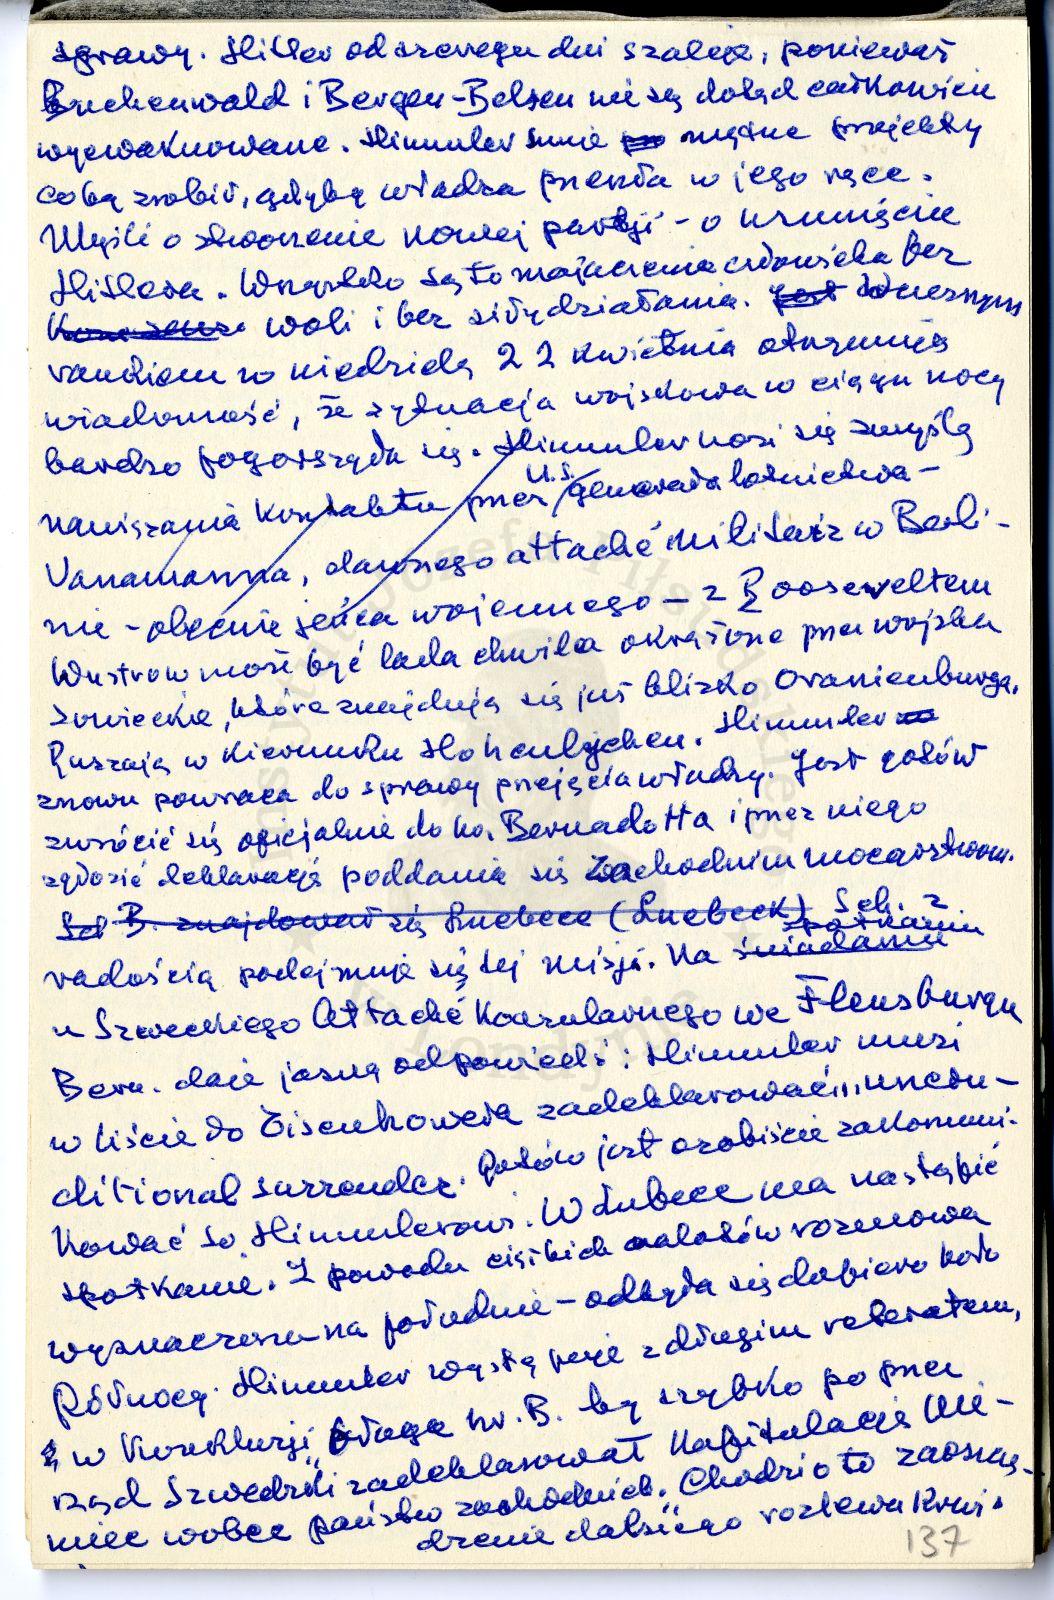 sprawy. Hitler od szeregu dni szaleje, ponieważ
Buchenwald i Bergen-Belsen nie są dotąd całkowicie
wyewakuowane. Himmler snuje mętne projekty
coby zrobił, gdyby władza przeszła w jego ręce.
Myśli o stworzenie nowej partji - o usunięcie
Hitlera. Wszystko są to majaczenia człowieka bez
woli i bez siły działania. Wczesnym
rankiem w niedzielę 22 kwietnia otrzymują
wiadomość, że sytuacja wojskowa w ciągu nocy
bardzo pogorszyła się. Himmler nosi się z myślą
nawiązania kontaktu przez U.S. generała lotnictwa -
Vanamanna, dawnego attaché militaire w Berli-
nie - obecnie jeńca wojennego - z Rooseveltem
Wustrow może być lada chwila okrążone przez wojska
sowieckie, które znajdują się już blizko Oranienburga.
Ruszają w kierunku Hohenlychen. Himmler
znowu powraca do sprawy przejęcia władzy. Jest gotów
zwrócić się oficjalnie do hr. Bernadotta i przez niego
zgłosić deklarację poddania się Zachodnim mocarstwom.
Sch B. znajdował się Luebece (Luebeck) Sch. z
radością podejmuje się tej misji. Na śniadaniu spotkaniu
u Szweckiego Attaché Konsularnego we Flensburgu
Bern. daje jasną odpowiedź: Himmler musi
w liście do Eisenhowera zadeklarować "uncon-
ditional surrender. Gotów jest osobiście zakomuni-
kować to Himmlerowi. W Lubece ma nastąpić
spotkanie. Z powodu ciężkich nalotów rozmowa
wyznaczona na południe - odbyła się dopiero koło
Północy. Himmler występuje z długim referatem,
w konkluzji błaga hr. B. by szybko po przez
rząd Szwedzki zadeklarował kapitulację Nie-
miec wobec państw zachodnich. Chodzi o to zaoszczę-
dzenie dalszego rozlewu krwi.
137